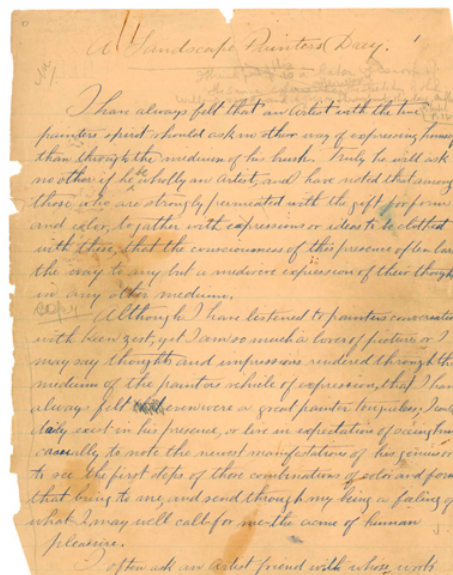 A Landscape Painters Diary.
No 1
I have always felt that an Artist with the true
painters spirit should ask no other way of expressing himself
than through the medium of his brush. Truly he will ask
no other if he be wholly an Artist, and I have noted that among
those who are strongly permeated with the gift for form
and color, together with expressions or ideas to be clothed
with these, that the consciousness of this presence often bars
the way to any but a mediocre expression of their thoughts
in any other medium.
Copy
Although I have listened to painters conversation
with keen zest, yet I am so much a lover of pictures or I
may say thoughts and impressions rendered through the
medium of the painters vehicle of expression, that I have
always felt even were a great painter tongueless, I could
daily exist in his presence, or live in expectation of seeing him
casually to note the newest manifestations of his genius or
to see the first steps of those combinations of color and form
that bring to me, and send through my being a feeling of
what I may well call for me the acme of human
pleasure.
I often ask an Artist friend with whose work